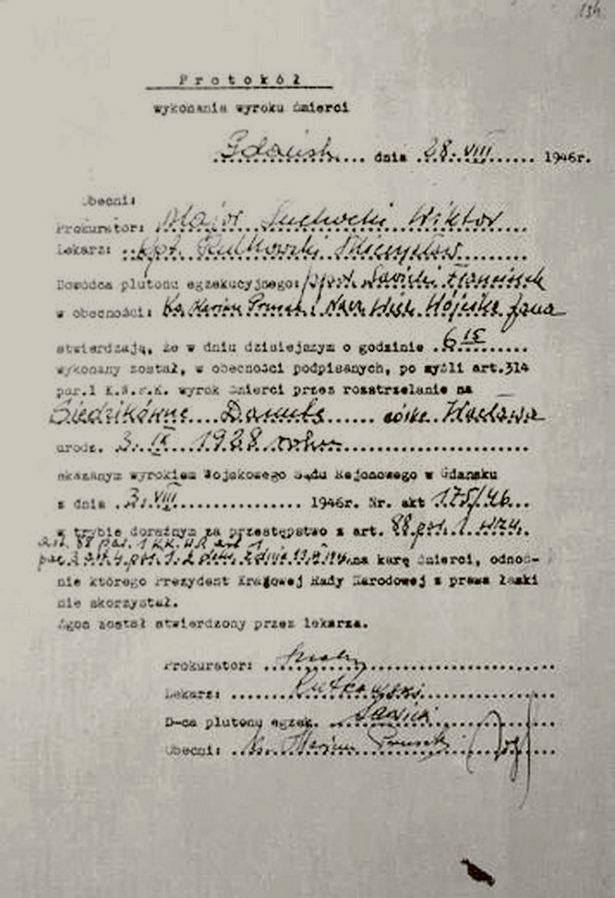 134
Protokół
wykonania wyroku śmierci
Gdańsk dnia 28.VIII 1946r.
Obecni:
Prokurator: Major Suchocki Wiktor
Lekarz: Kpt. Rutkowski Mieczysław
Dowódca plutonu egzekucyjnego: ppor. Sawicki Franciszek
w obecności: Ks. Marian Prusak i Nacz. Więz. Wójcika Jana
stwierdzają, że w dniu dzisiejszym o godzinie 6 15
wykonany został, w obecności podpisanych, po myśli art.314
par.1 K.W.P.K. wyrok śmierci przez rozstrzelanie na
Siedzikównę Danutę córkę Wacława
urodz. 3.IX 1928 roku
skazanym wyrokiem Wojskowego Sądu Rejonowego w Gdańsku
z dnia 3.VIII 1946r. Nr. akt 175/46
w trybie doraźnym za przestępstwo z art. 88 par. 1
art. 88 par. 1 KK. art 1
na karę śmierci, odnoś-
nie którego Prezydent Krajowej Rady Narodowej z prawa łaski
nie skorzystał.
Zgon został stwierdzony przez lekarza.
Prokurator:
Lekarz: Rutkowski
D-ca plutonu egzek. Sawicki
Obecni: Ks. Marian Prusak